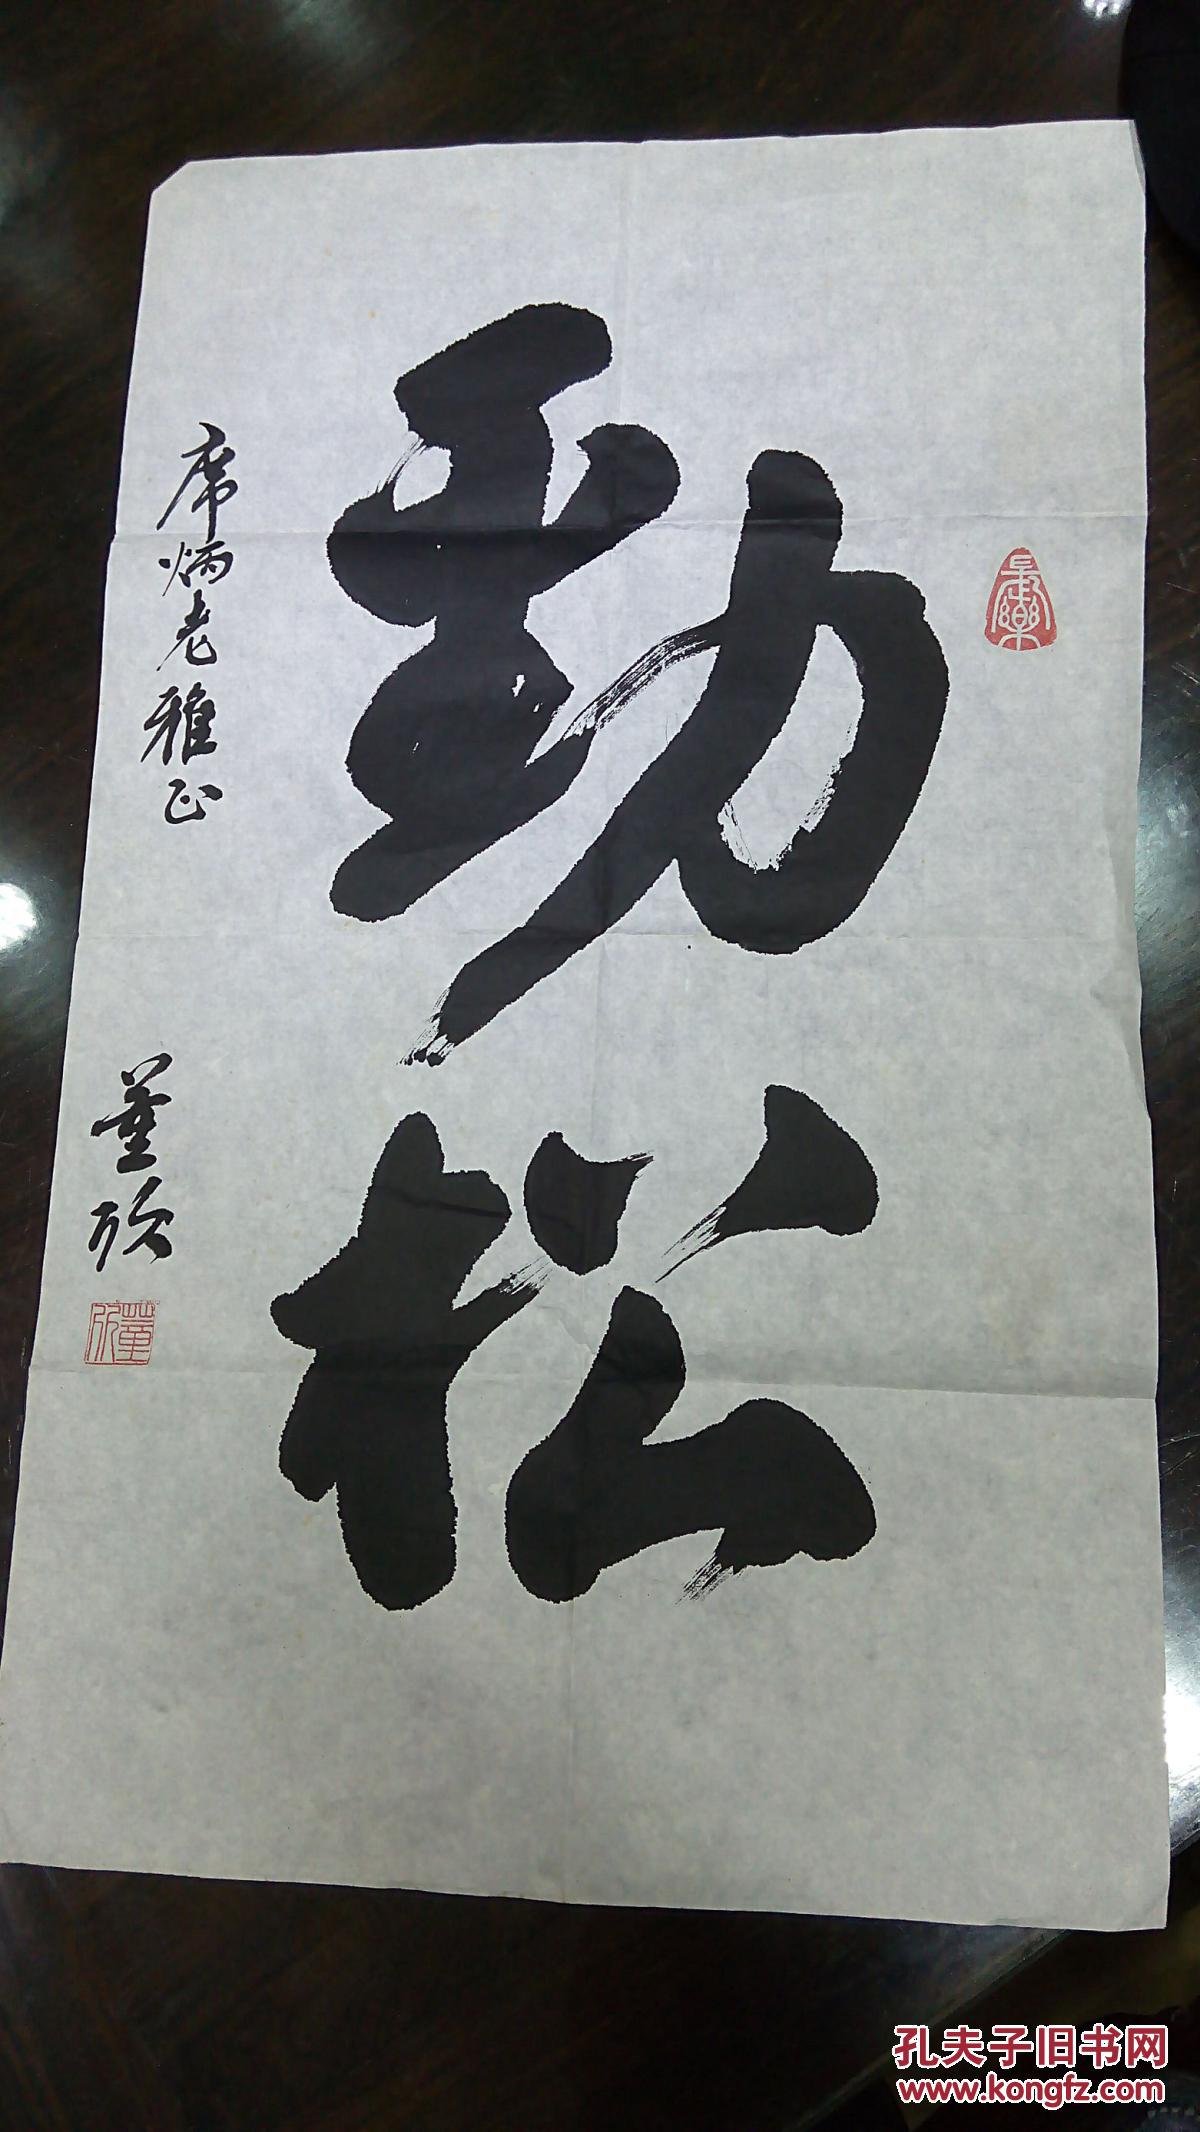 劲松
席炳老雅正
董欣
孔夫子旧书网
www.kongfz.com